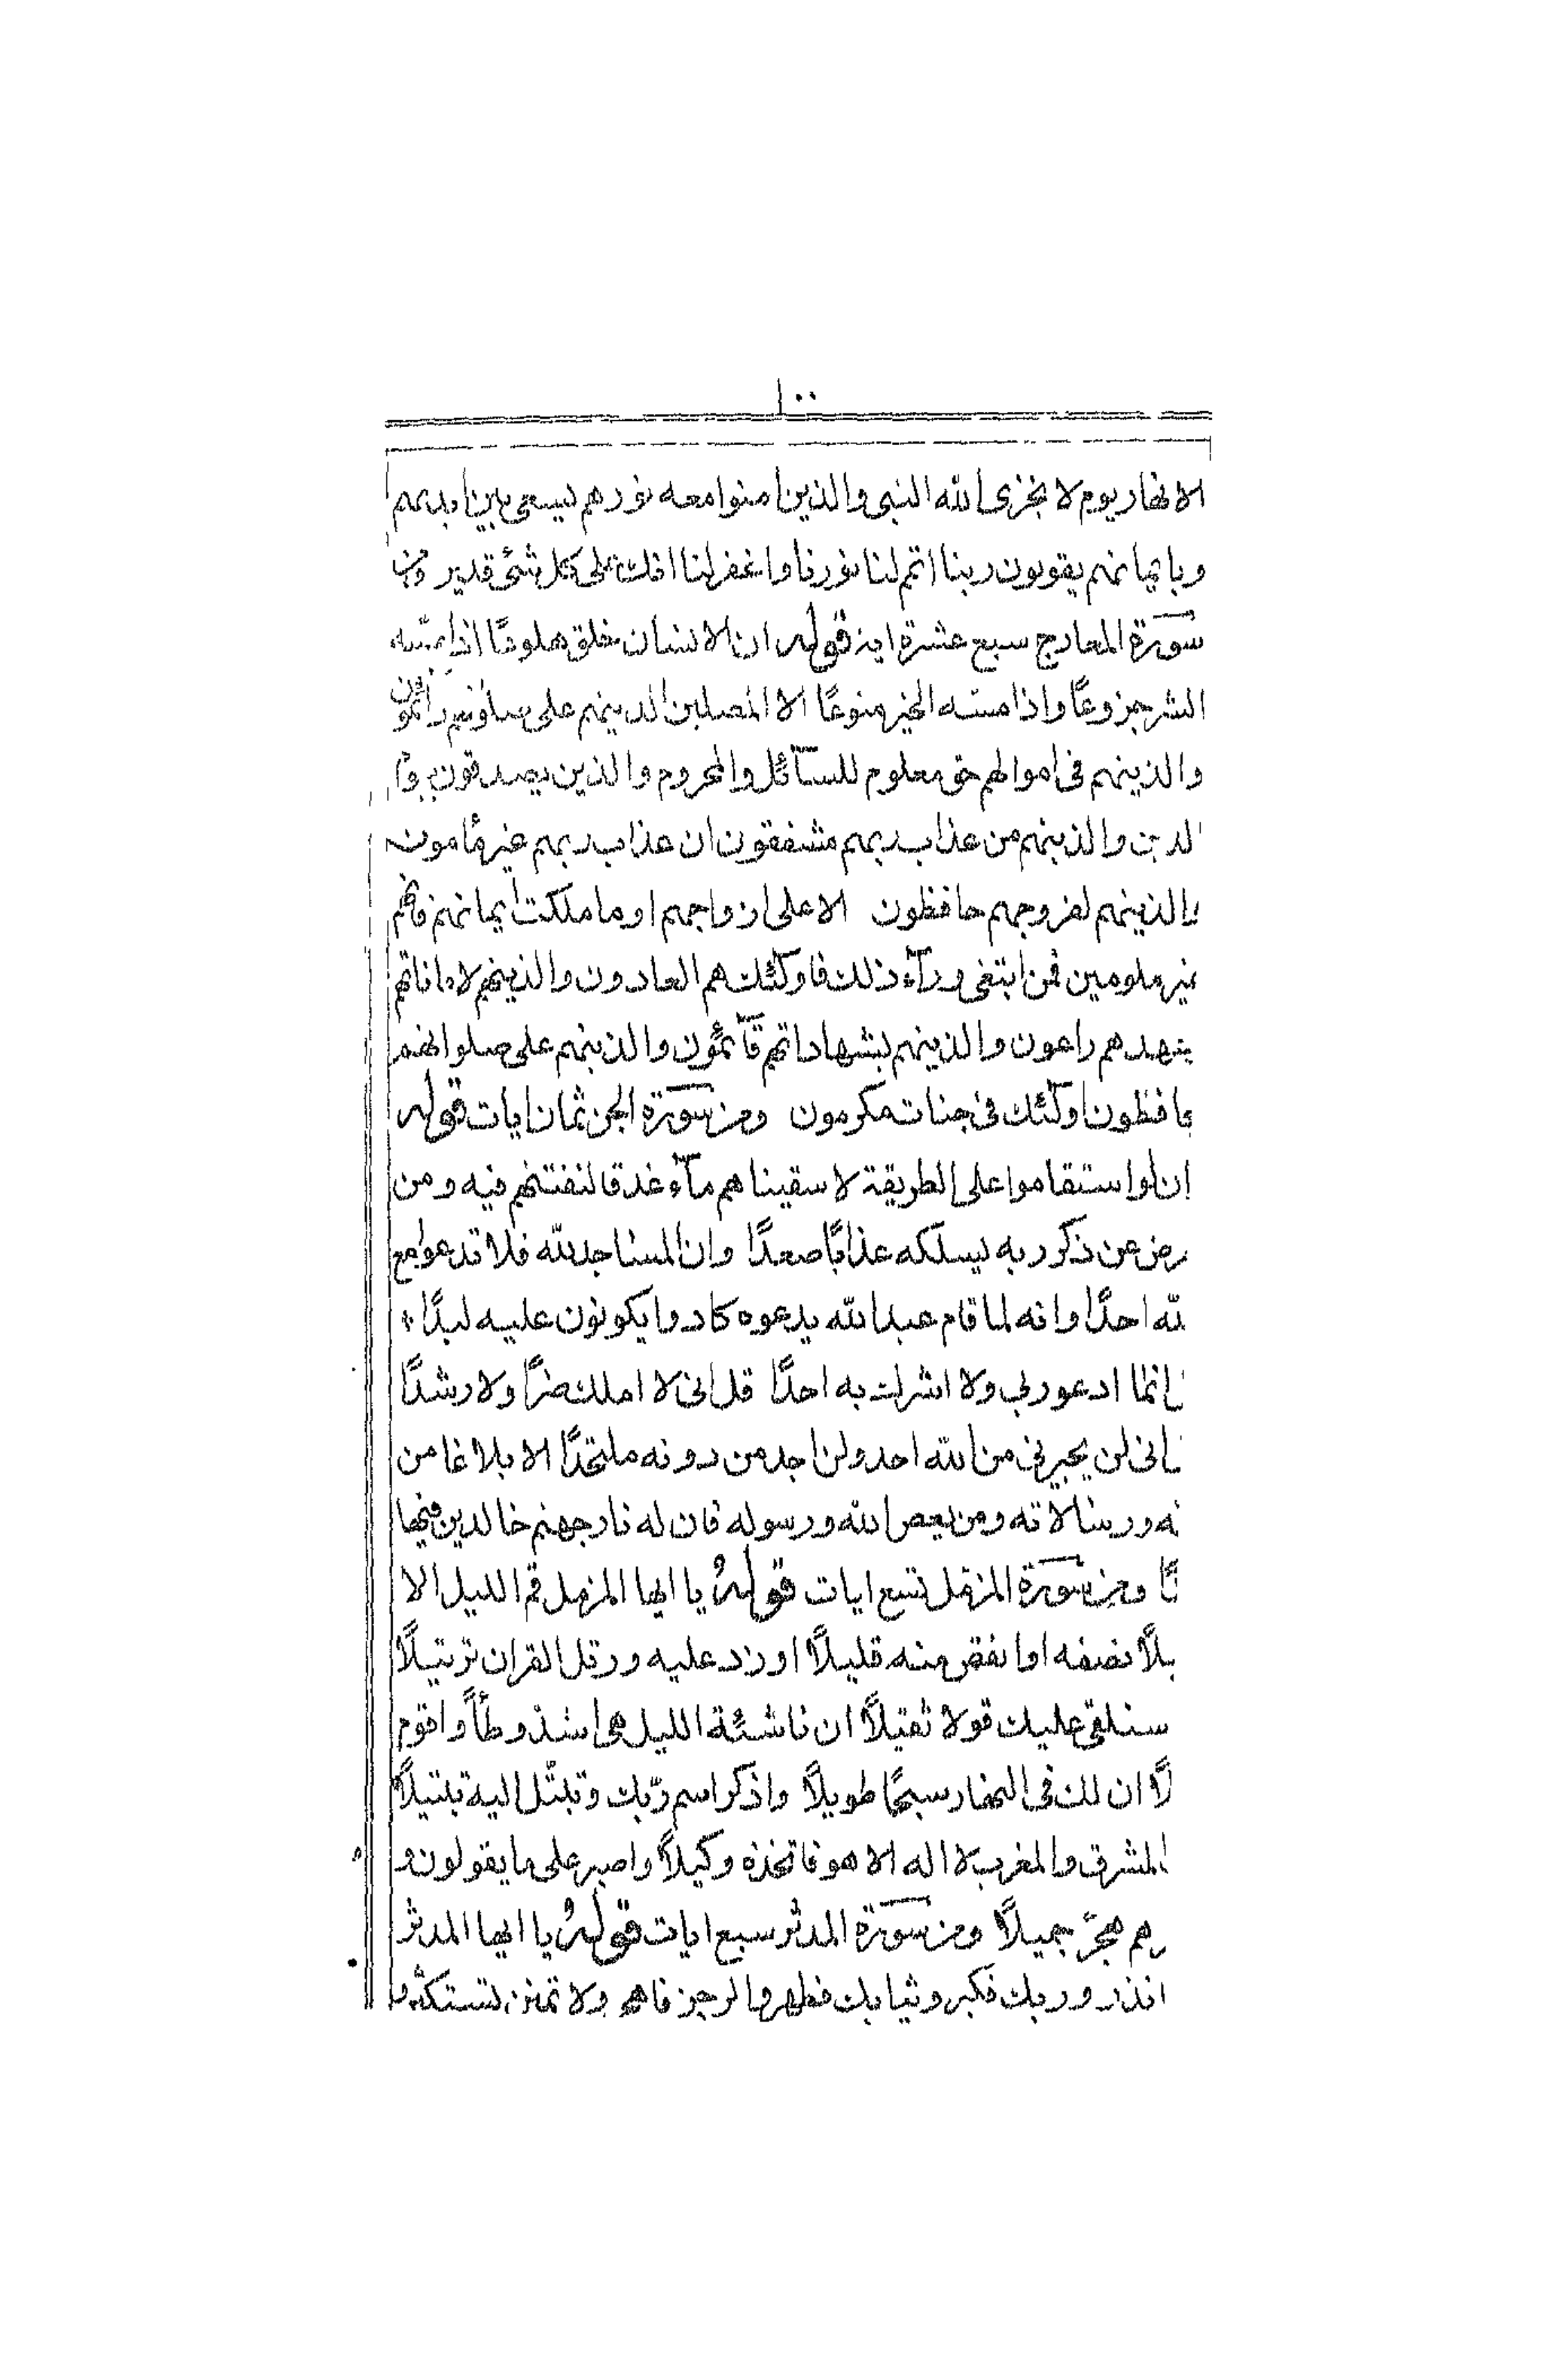 ١٠٠
الانهار يوم لا يخزى الله النبى والذين امنوا معه نورهم يسعى بين ايديهم
وبايمانهم يقولون ربنا اتمم لنا نورنا واغفر لنا انك على كل شئ قدير ومن
سورة المعارج سبع عشرة اية قوله ان الانسان خلق هلوعًا اذا مسّه
الشر جزوعًا واذا مسه الخير منوعًا الا المصلين الذينهم على صلوتهم دائمون
والذينهم فى اموالهم حق معلوم للسآئل والمحروم والذين يصدقون بيوم
الدين والذينهم من عذاب ربهم مشفقون ان عذاب ربهم غير مأمون
والذينهم لفروجهم حافظون الا على ازواجهم او ما ملكت ايمانهم فانهم
غير ملومين فمن ابتغى ورآء ذلك فاولئك هم العادون والذينهم لاماناتهم
عهدهم راعون والذينهم بشهاداتهم قآئمون والذينهم على صلواتهم
حافظون اولئك فى جنات مكرمون ومن سورة الجن ثمان ايات قوله
ان لو استقاموا على الطريقة لاسقيناهم مآء غدقا لنفتنهم فيه ومن
رض عن ذكر ربه يسلكه عذابًا صعدًا وان المساجد لله فلا تدعوا مع
لله احدًا وانه لما قام عبد الله يدعوه كادوا يكونون عليه لبدًا
انما ادعو ربى ولا اشرك به احدًا قل انى لا املك ضرًا ولا رشدًا
انى لن يجيرنى من الله احد ولن اجد من دونه ملتحدًا الا بلاغا من
ـه ورسالاته ومن يعص الله ورسوله فان له نار جهنم خالدين فيها
دًا ومن سورة المزمل تسع ايات قوله يا ايها المزمل قم الليل الا
يلًا نصفه او انقص منه قليلًا او زد عليه ورتل القران ترتيلًا
سنلقى عليك قولا ثقيلًا ان ناشئة الليل هى اشد وطأً واقوم
لًا ان لك فى النهار سبحًا طويلًا واذكر اسم ربّك وتبتّل اليه تبتيلًا
المشرق والمغرب لا اله الا هو فاتخذه وكيلًا واصبر على ما يقولون و
رهم هجرً جميلًا ومن سورة المدثر سبع ايات قوله يا ايها المدثر
انذر وربك فكبر وثيابك فطهر والرجز فاهجر ولا تمنن تستكثر و